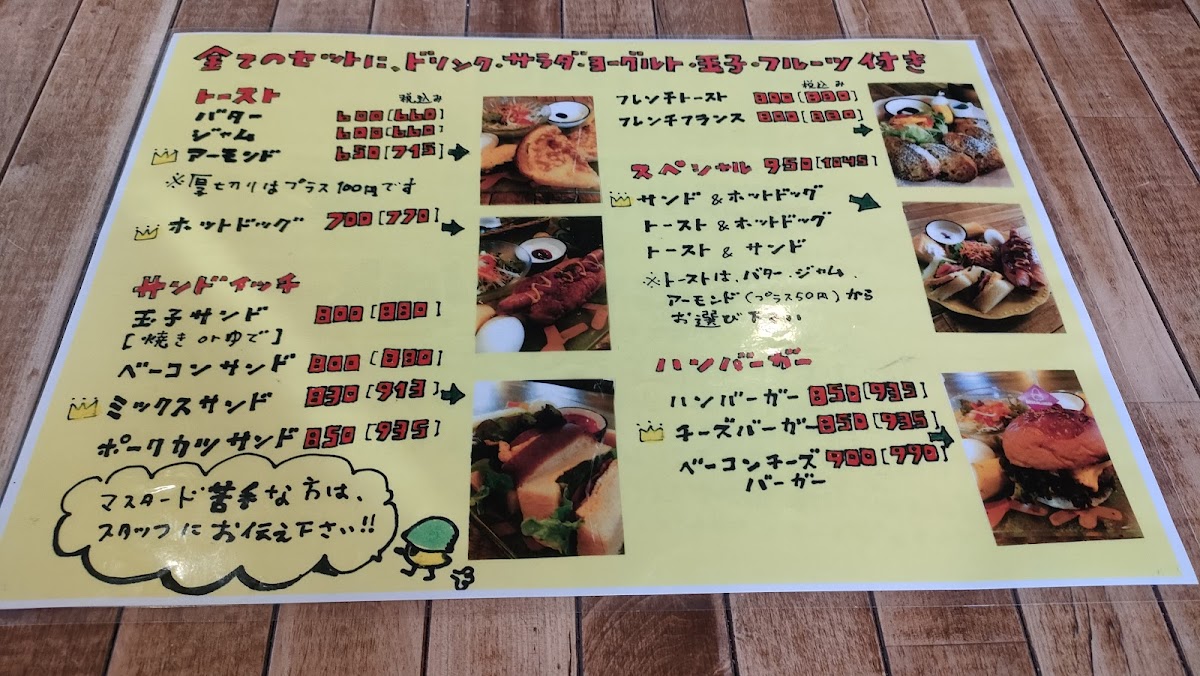 全てのセットに、ドリンク・サラダ・ヨーグルト・玉子・フルーツ付き
トースト 税込み
バター 600[660]
ジャム 600[660]
アーモンド 650[715]
※厚切りはプラス100円です
ホットドッグ 700[770]
サンドイッチ
玉子サンド 800[880]
[焼きorゆで]
ベーコンサンド 800[880]
ミックスサンド 830[913]
ポークカツサンド 850[935]
マスタード苦手な方は、
スタッフにお伝え下さい!!
税込み
フレンチトースト 800[880]
フレンチフランス 800[880]
スペシャル 950[1045]
サンド&ホットドッグ
トースト&ホットドッグ
トースト&サンド
※トーストは、バター、ジャム、
アーモンド(プラス50円)から
お選び下さい
ハンバーガー
ハンバーガー 850[935]
チーズバーガー 850[935]
ベーコンチーズ 900[990]
バーガー